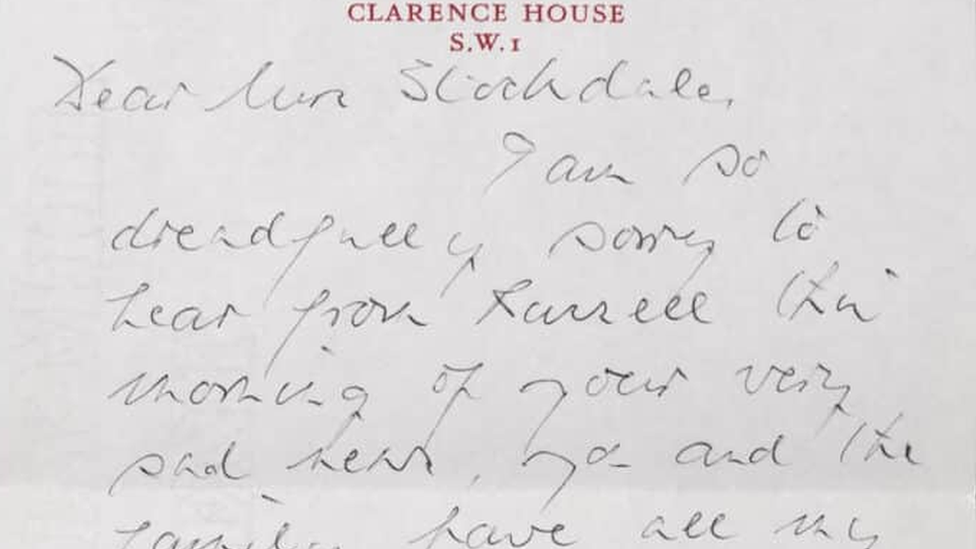 CLARENCE HOUSE
S.W.1
Dear Stockdale,
I am so
dreadfully sorry to
hear from Russell this
morning of your very
sad news, you and the
family have all my